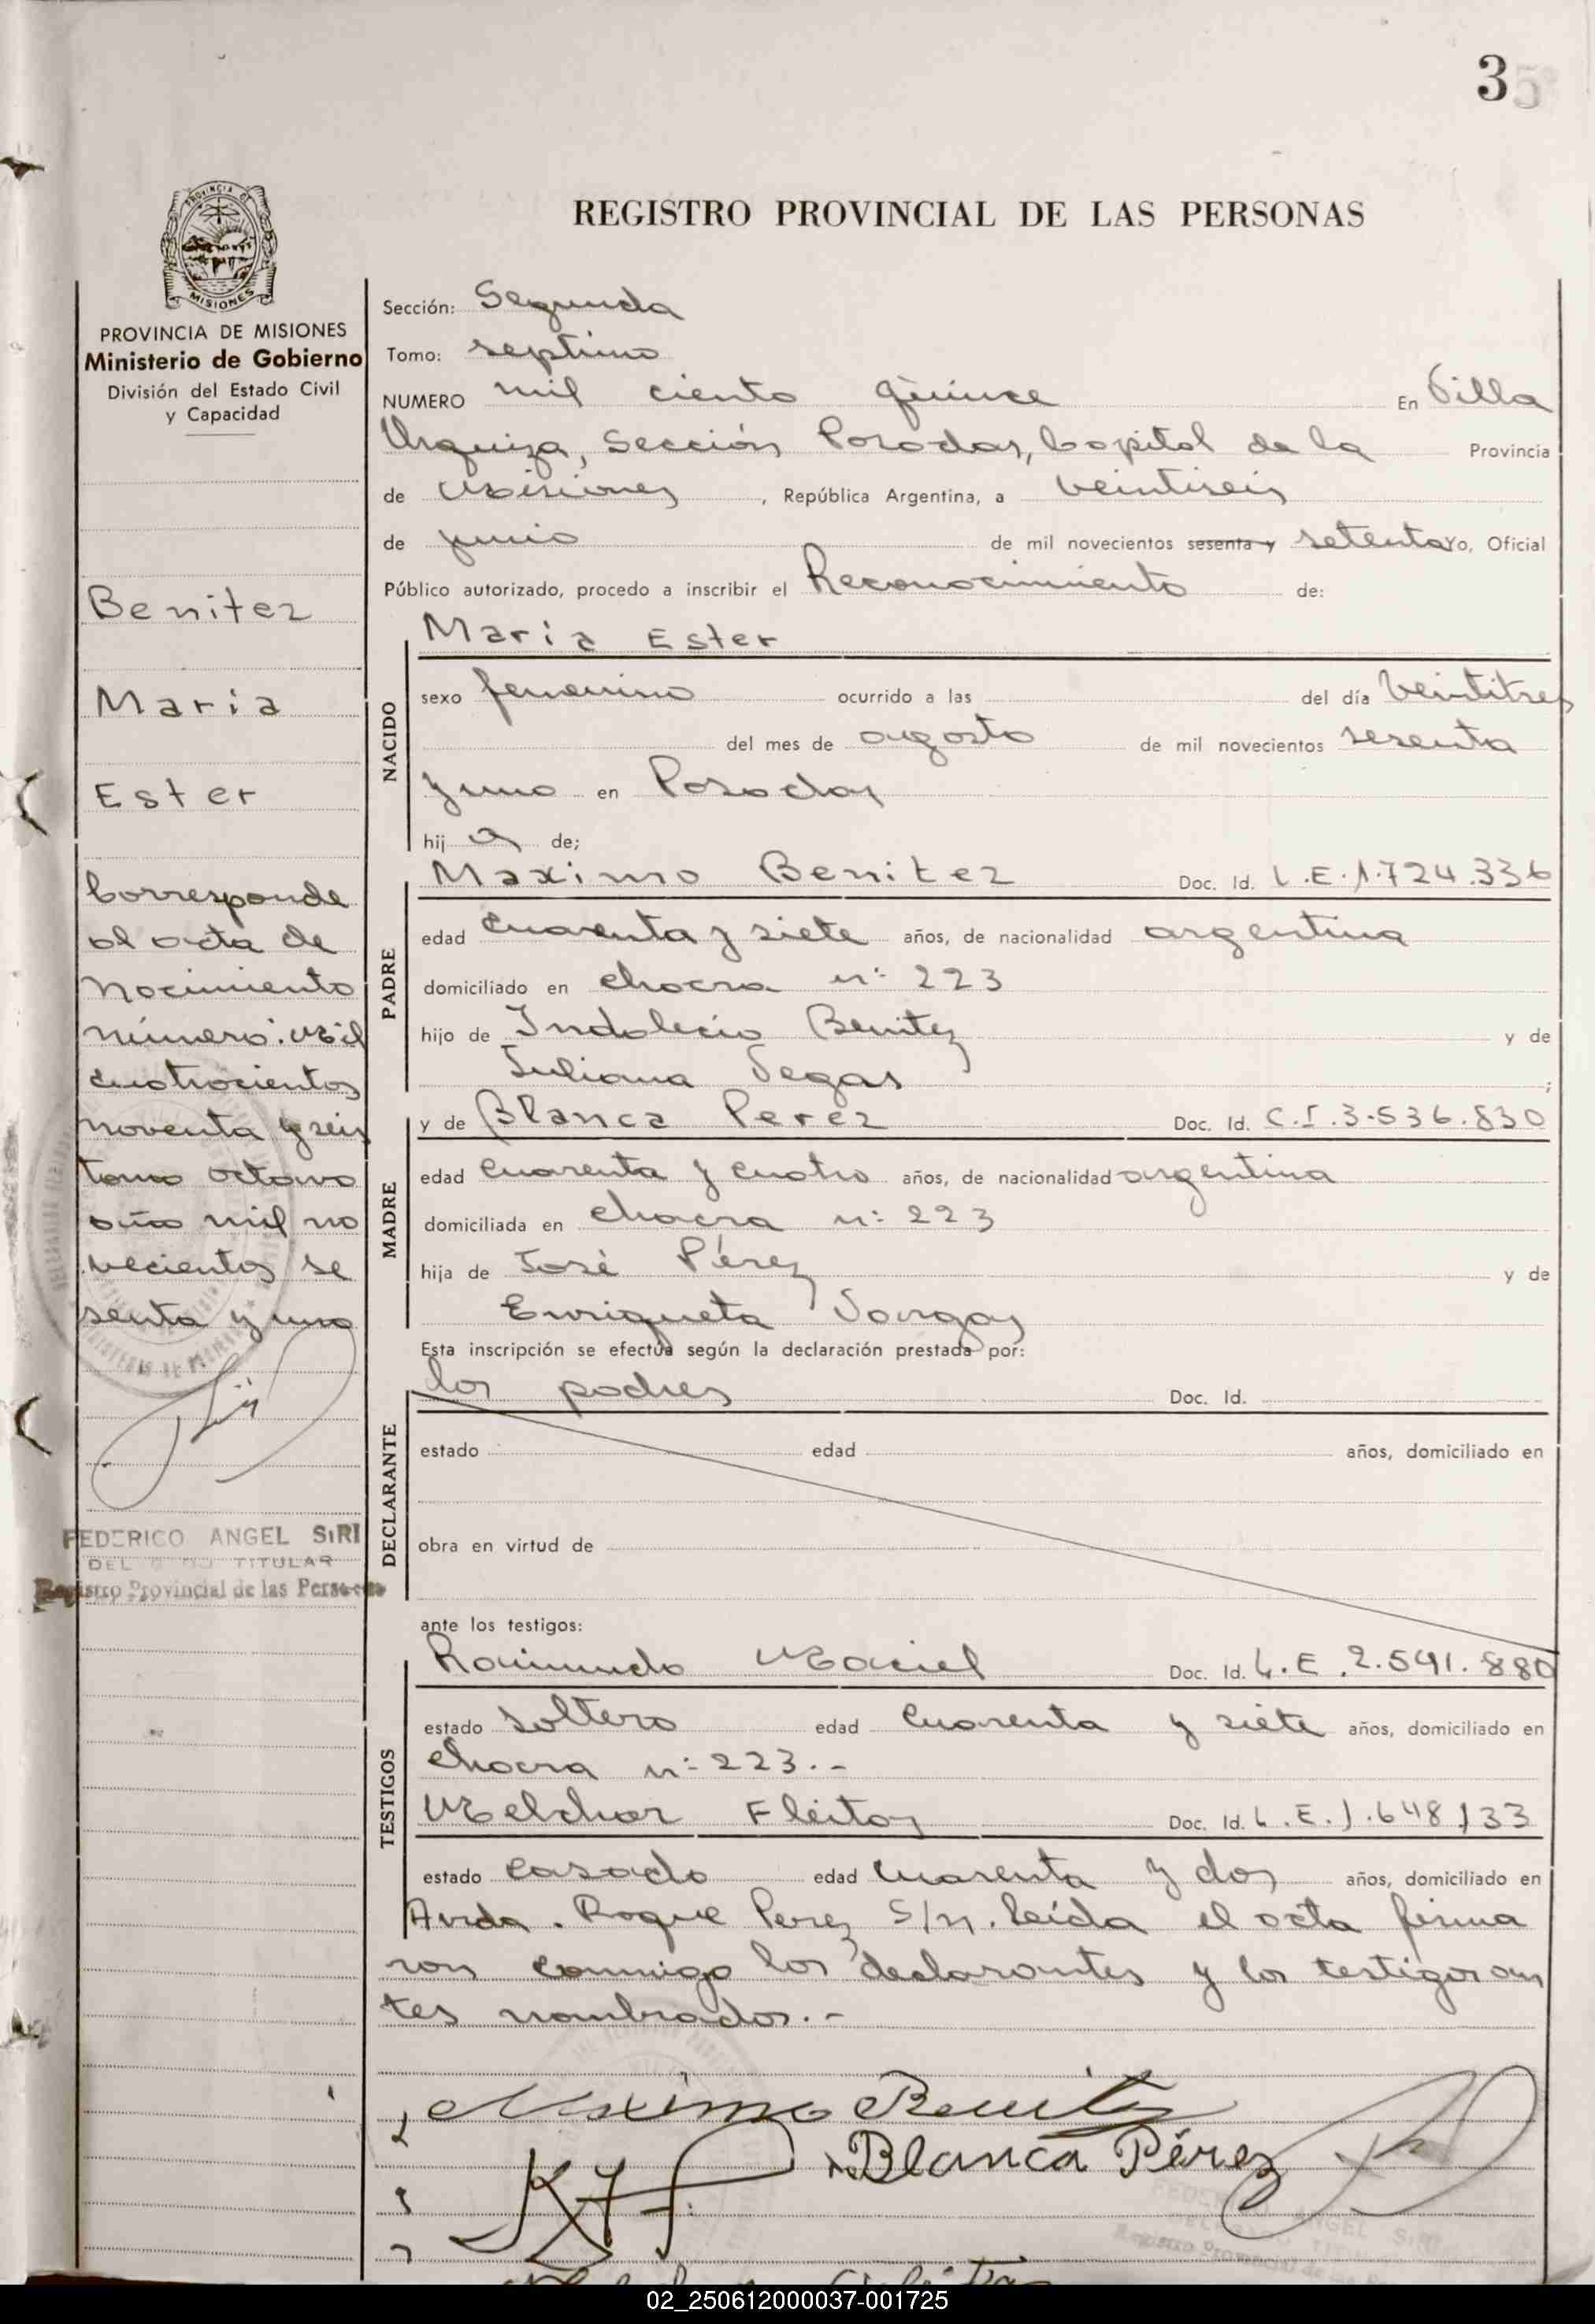 35
REGISTRO PROVINCIAL DE LAS PERSONAS
PROVINCIA DE MISIONES
Ministerio de Gobierno
División del Estado Civil
y Capacidad
Benitez
Maria
Ester
Corresponde
al acta de
Nacimiento
número: Mil
cuatrocientos
noventa y seis
tomo octavo
año mil no
vecientos se
senta y uno
FEDERICO ANGEL SIRI
TITULAR
Registro Provincial de las Personas
Sección: Segunda
Tomo: septimo
NUMERO mil ciento quince En Villa
Urquiza, Sección Posadas, Capital de la Provincia
de Misiones, República Argentina, a veintiseis
de junio de mil novecientos sesenta y setenta Yo, Oficial
Público autorizado, procedo a inscribir el Reconocimiento de:
Maria Ester
NACIDO
sexo femenino ocurrido a las del día veintitres
del mes de agosto de mil novecientos sesenta
y uno en Posadas
hij a de;
PADRE
Maximo Benitez Doc. Id. L.E.1.724.336
edad cuarenta y siete años, de nacionalidad argentina
domiciliado en chacra n: 223
hijo de Indalecio Benitez y de
Juliana Vegas ;
MADRE
y de Blanca Perez Doc. Id. C.I.3.536.830
edad cuarenta y cuatro años, de nacionalidad argentina
domiciliada en chacra n: 223
hija de José Pérez y de
Enriqueta Vargas
Esta inscripción se efectúa según la declaración prestada por:
DECLARANTE
los padres Doc. Id.
estado edad años, domiciliado en
obra en virtud de
ante los testigos:
TESTIGOS
Raimundo Maciel Doc. Id. L.E.2.541.880
estado soltero edad cuarenta y siete años, domiciliado en
chacra n: 223.-
Melchor Fleitas Doc. Id. L.E.1.648133
estado casado edad cuarenta y dos años, domiciliado en
Avda. Roque Perez S/n. Leída el acta firma
ron conmigo los declarantes y los testigos an
tes nombrados.-
Máximo Benitez
Blanca Pérez
FEDERICO ANGEL SIRI
Registro Provincial de las
02_250612000037-001725